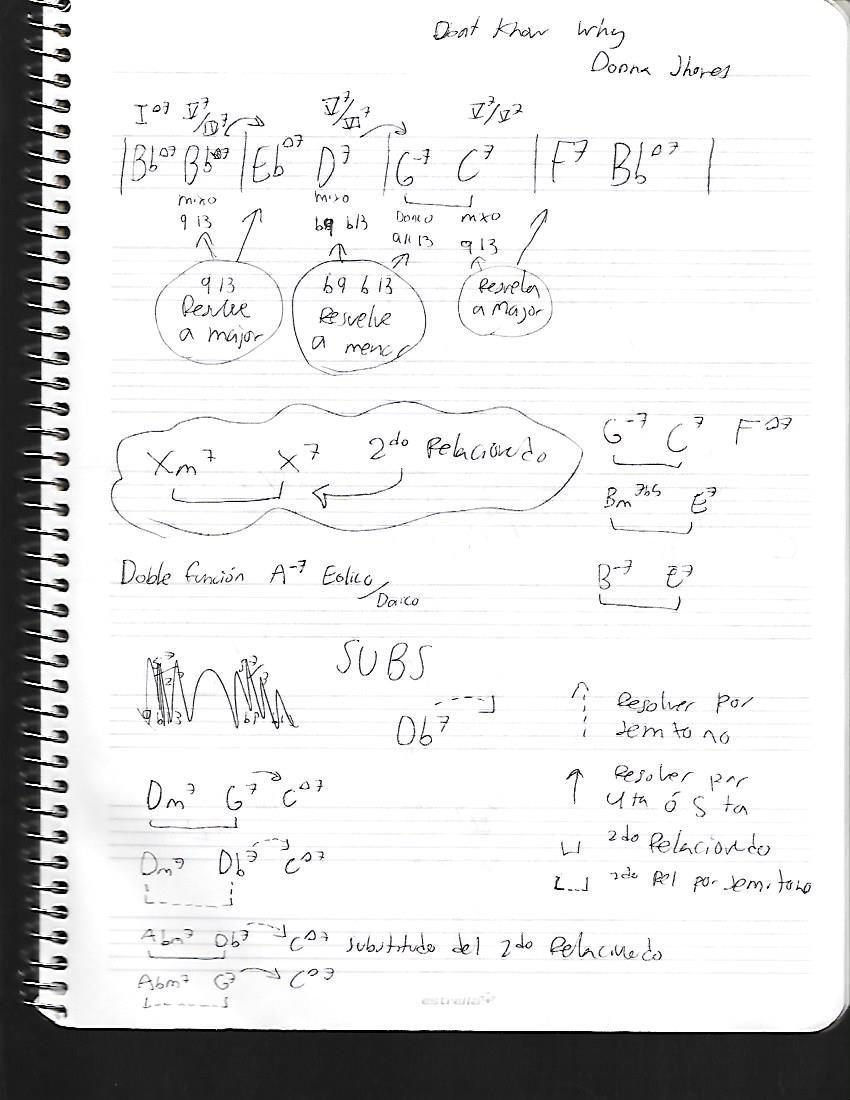 Dont Know Why
Donna Jhones
I△7 V7/IV7 V7/VI7 V7/V7
|Bb△7 Bb△7 |Eb△7 D7 |G-7 C7 |F7 Bb△7 |
mixo mixo Dorico mxo
9 13 b9 b13 9 11 13 9 13
9 13
Resuelve
a major
b9 b13
Resuelve
a menor
Resvela
a Major
Xm7 X7 2do Relacionado
G-7 C7 F△7
Bm7b5 E7
B-7 E7
Doble función A-7 Eolico/Dorico
SUBS
Db7
Resolver por
semitono
Resolver por
4ta ó 5ta
2do Relacionado
2do Rel por semitono
Dm7 G7 C△7
Dm7 Db7 C△7
Abm7 Db7 C△7 substituto del 2do Relacionado
Abm7 G7 C△7
estrella